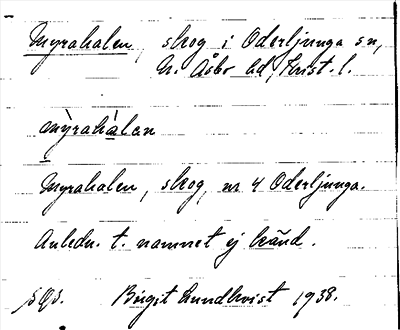 Myrahalen, skog i Oderljunga sn,
N. Åsbo hd, Krist. l.
mỳrahàlan
Myrahalen, skog, nr 4 Oderljunga.
Anledn. t. namnet ej känd.
Birgit Lundkvist 1938.